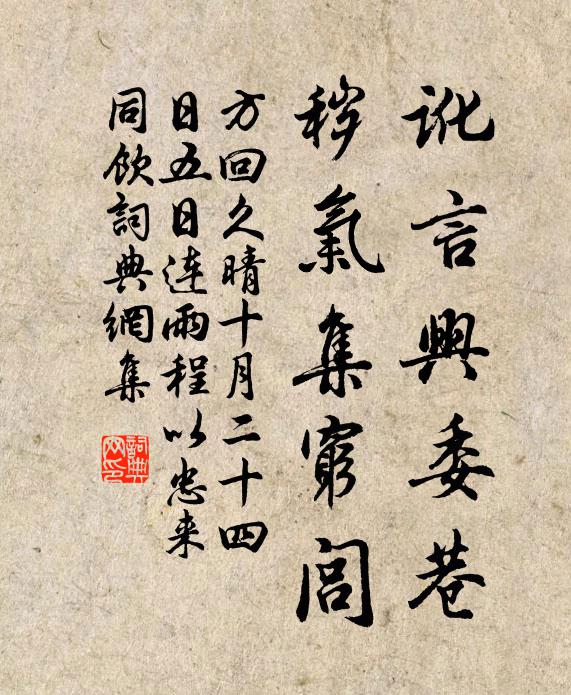 訛言興委巷
穢氣集窮閭
方回久晴十月二十四
日五日連雨程以忠来
同飲詞典網集
詞典網印